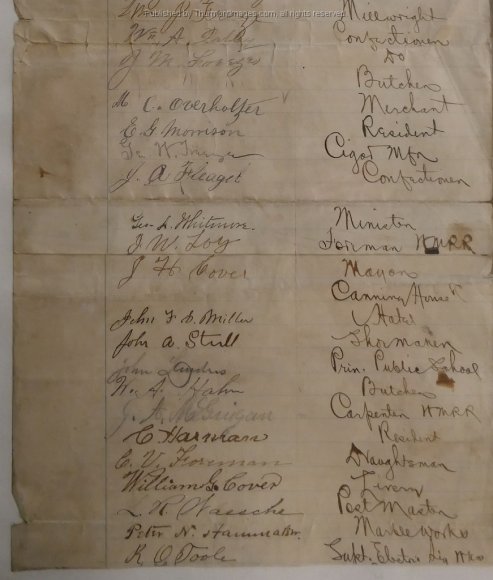 Published by ThurmontImages.com, all rights reserved.
Millwright
Wm A. Confectioner
J M Do
Butcher
M C. Overholtzer Merchant
E. G. Morrison Resident
Geo W. Cigar Mfr
J. A Fleagel Confectioner
Geo. L. Whitmore. Minister
J. W. Loy Forman WMRR
J H. Cover Mayor
Canning House
John F. D. Miller Hotel
John A. Stull Shoemaker
John Landers Prin. Public School
Wm. J. Hahn Butcher
J. H. Carpenter WMRR
C Harnhan Resident
C. V. Foreman Draughtsman
William G. Cover Livery
L. R. Waesche Post Master
Peter N. Hammaker. Marble Works
R. C. Toole Supt. Electric Lig Wks